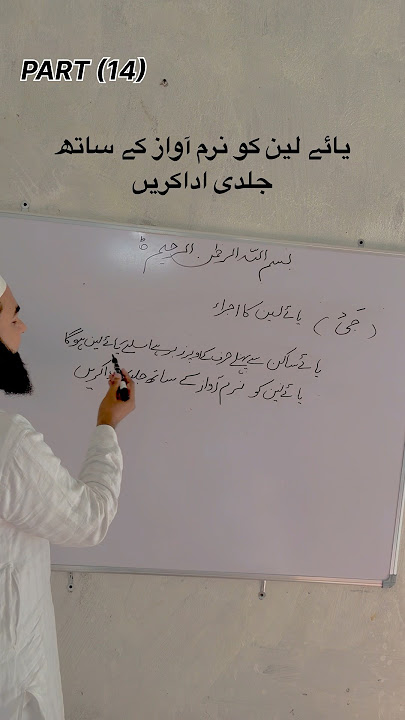 PART (14)
یائے لین کو نرم آواز کے ساتھ
جلدی اداکریں
بسم اللہ الرحمٰن الرحیم ط
یائے لین کا اجراء ( جَیْ )
یائے ساکن سے پہلے حرف کے اوپر زبر ہے اسلئے یہ یائے لین ہوگا
یائے لین کو نرم آواز کے ساتھ جلدی اداکریں